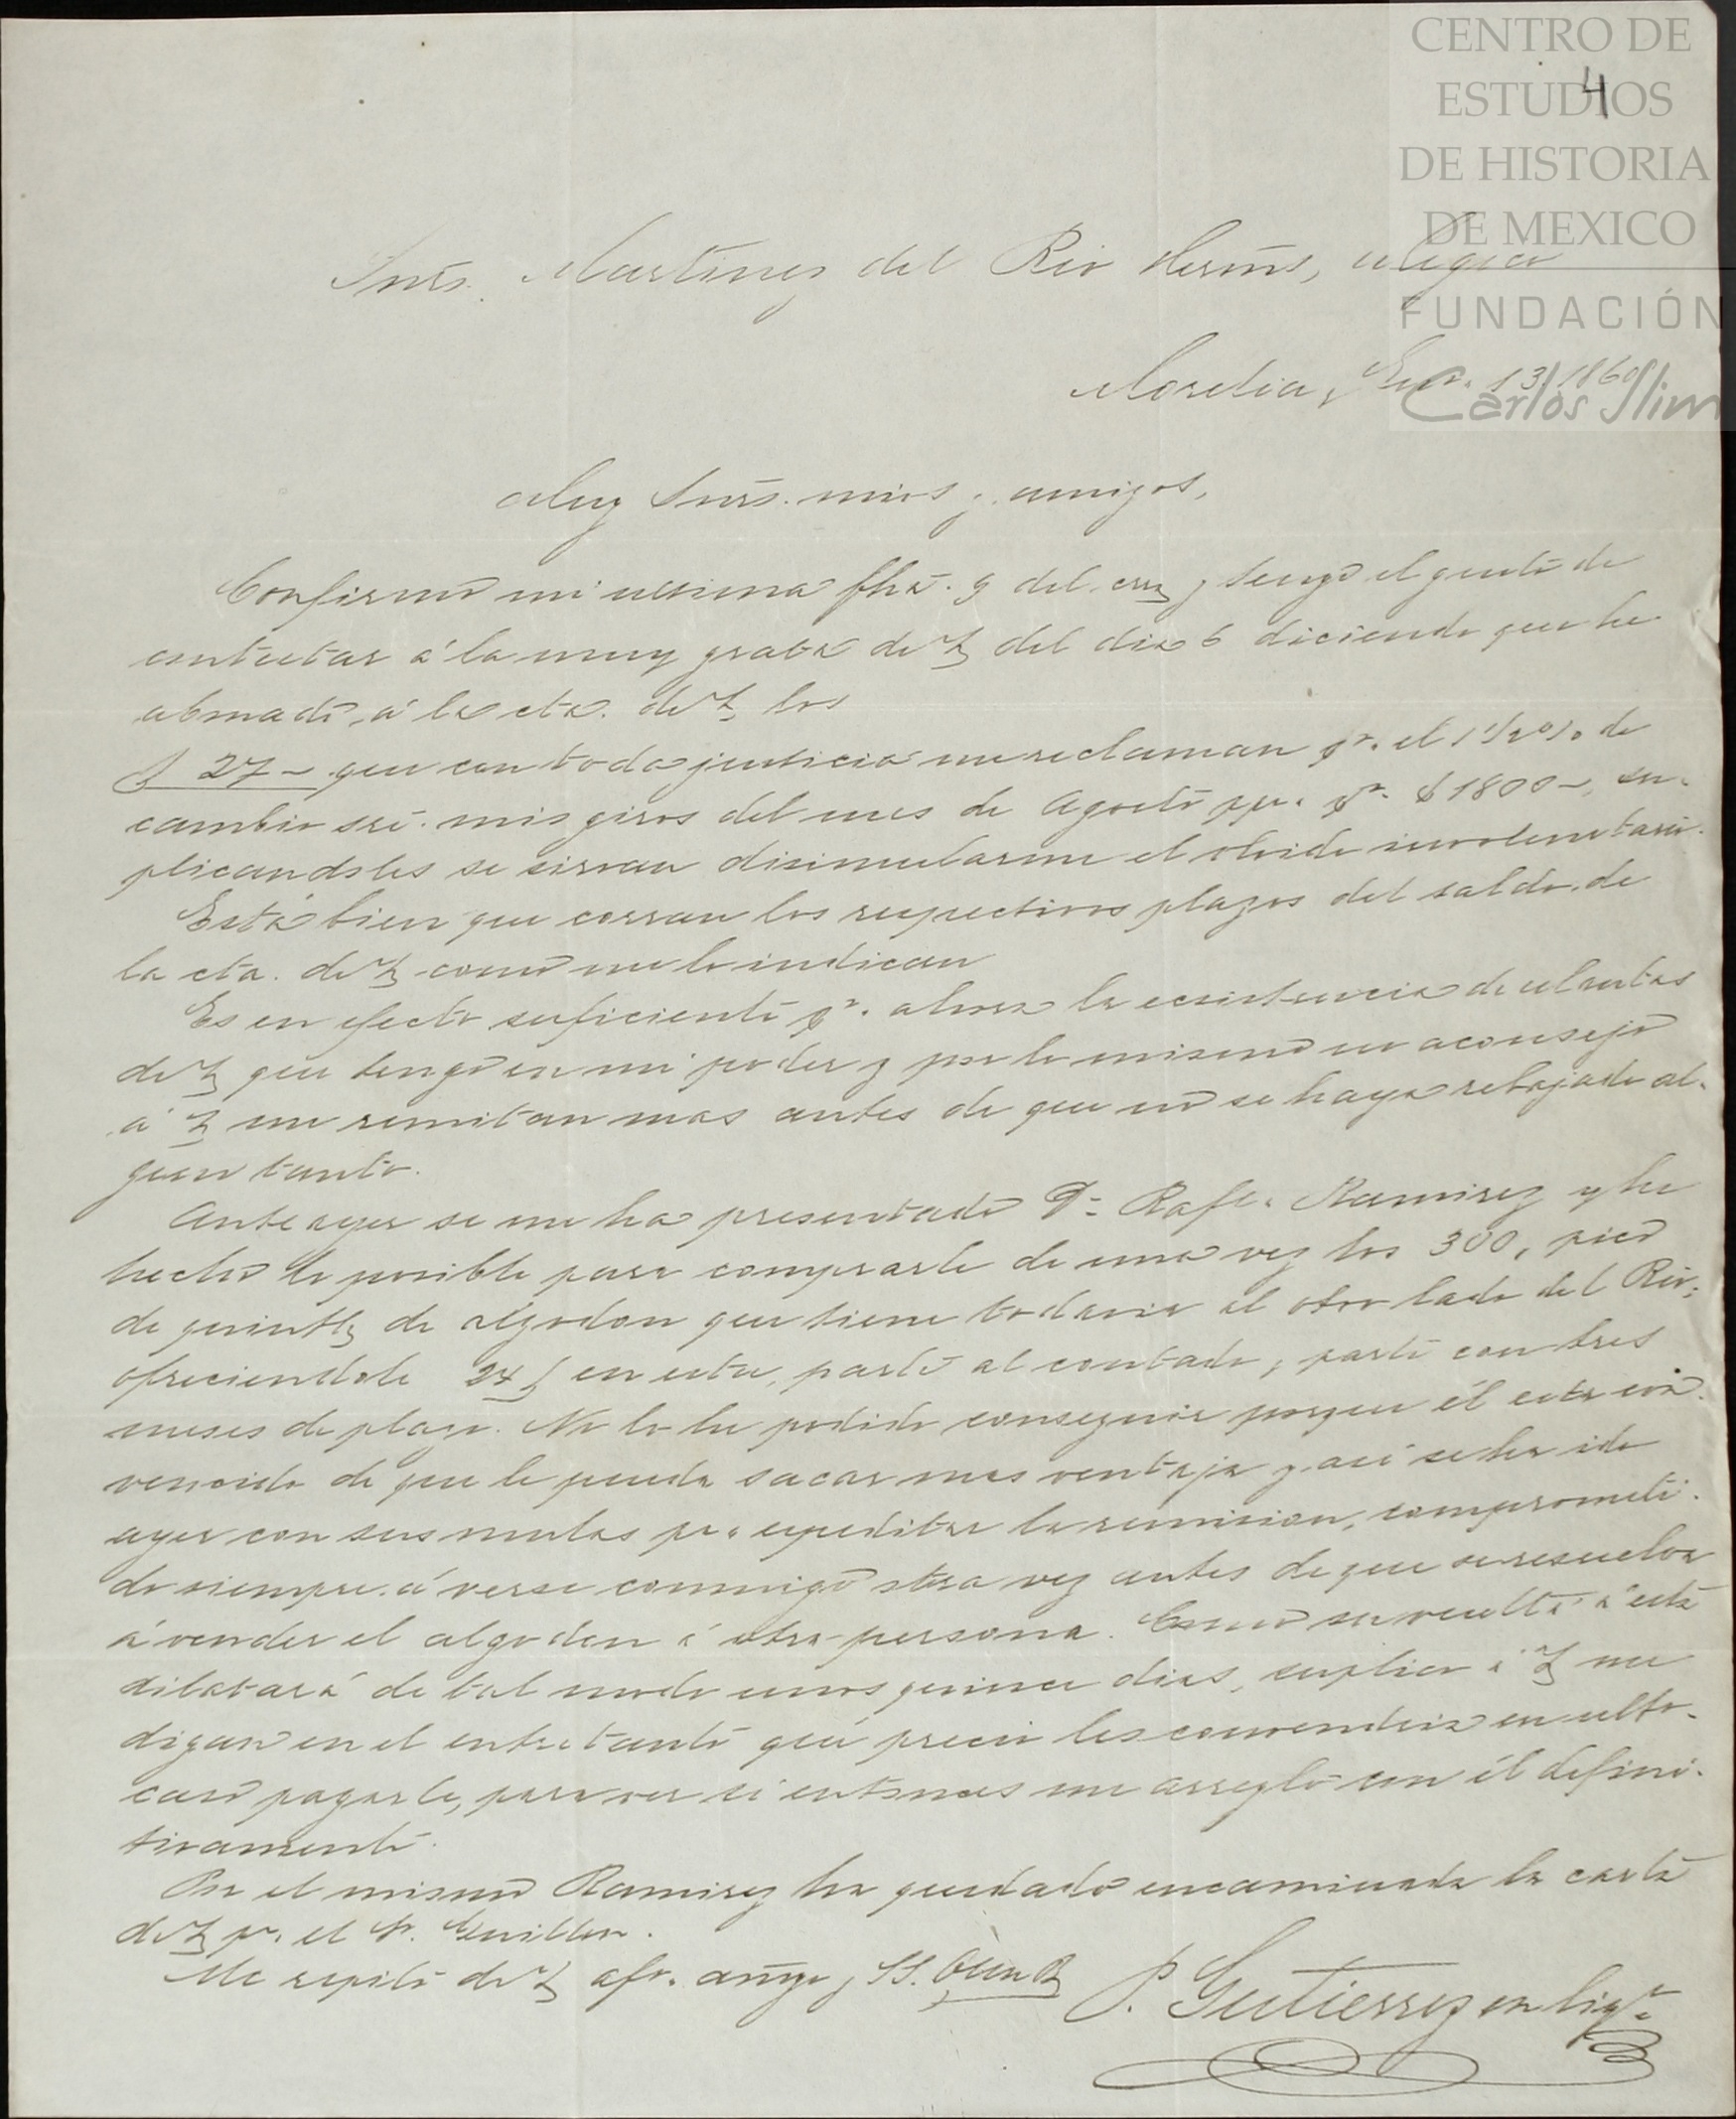 CENTRO DE
ESTUDIOS
DE HISTORIA
DE MEXICO
FUNDACIÓN
Carlos Slim
4
Snrs. Martinez del Rio Herms, Mejico
Morelia, 13/1860
Muy Snrs. mios y amigos,
Confirmo mi ultima fha. 9 del cte y tengo el gusto de
contestar á la muy grata de V del dia 6 diciendo que he
abonado á la cta. de V los
$ 27 - que con toda justicia me reclaman pr. el 1 1/2 o/o de
cambio sre. mis giros del mes de Agosto pp. pr. $ 1800 -, su-
plicandoles se sirvan disimularme el olvido involuntario.
Está bien que corran los respectivos plazos del saldo de
la cta. de V como me lo indican
Es en efecto suficiente pr. ahora la ecsistencia de mantas
de V que tengo en mi poder y por lo mismo no aconsejo
á V me remitan mas antes de que no se haya rebajado al-
gun tanto.
Ante ayer se me ha presentado Dn. Rafl. Ramirez y he
hecho lo posible para comprarle de una vez los 300, pico
de quintls de algodon que tiene todavia al otro lado del Rio;
ofreciendole 24 $ en esta, parte al contado y parte con tres
meses de plazo. No lo he podido conseguir porque él está con-
vencido de que le pueda sacar mas ventaja y asi se ha ido
ayer con sus mulas pa. espeditar la remision, comprometi-
do siempre á verse conmigo otra vez antes de que se resuelva
á vender el algodon á otra persona. Como su vuelta á esta
dilatará de tal modo unos quince dias, suplico á V me
digan en el entretanto qué precio les convendria en ulto.
caso pagarle, para ver si entonces me arreglo con él defini-
tivamente.
Por el mismo Ramirez ha quedado encaminada la carta
de V pa. el Sr. Guillen.
Me repito de V afo. amgo y SS. QBSM
P. Gutierrez en liqn.